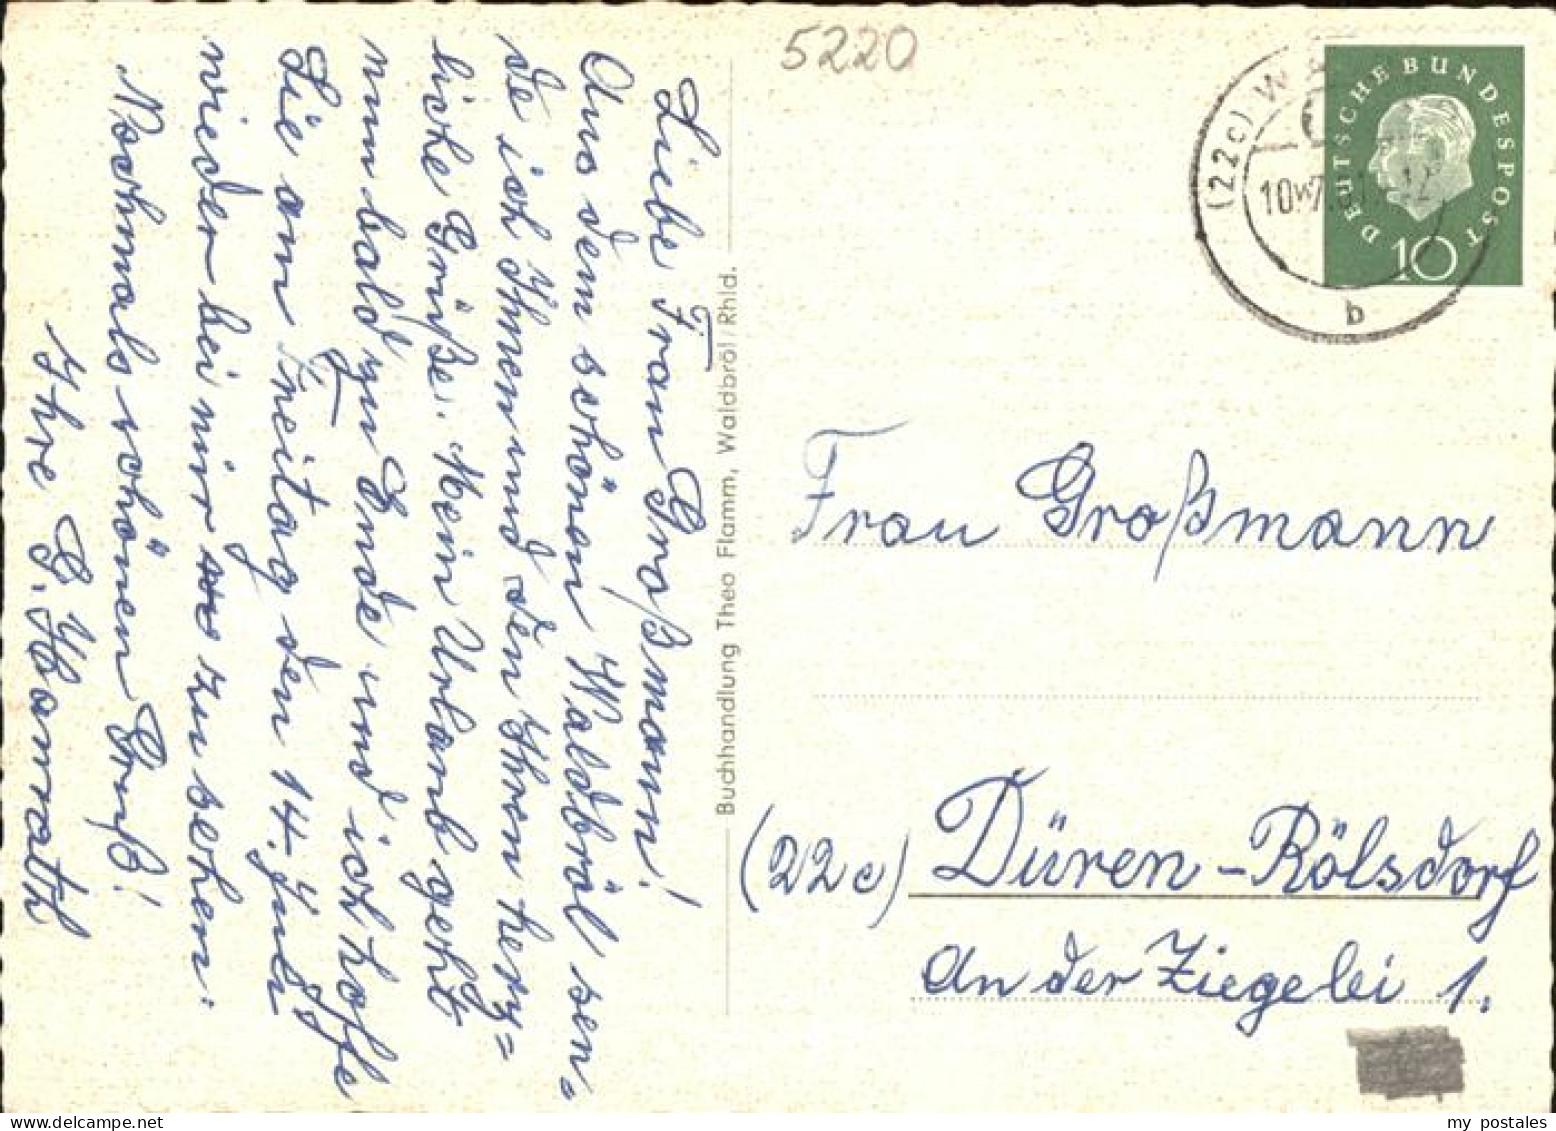 5220
Liebe Frau Großmann!
Aus dem schönen Waldbröl sen-
de ich Ihnen und den Ihren herz=
liche Grüße. Mein Urlaub geht
nun bald zu Ende und ich hoffe
Sie am Freitag den 14. Juli
wieder bei mir zu sehen.
Nochmals schönen Gruß!
Ihre G. Hamrath
Buchhandlung Theo Flamm, Waldbröl Rhld.
(22c) WA
10.7.61.-12
b
DEUTSCHE BUNDESPOST
10
Frau Großmann
(22c) Düren-Rölsdorf
An der Ziegelei 1.
my postales